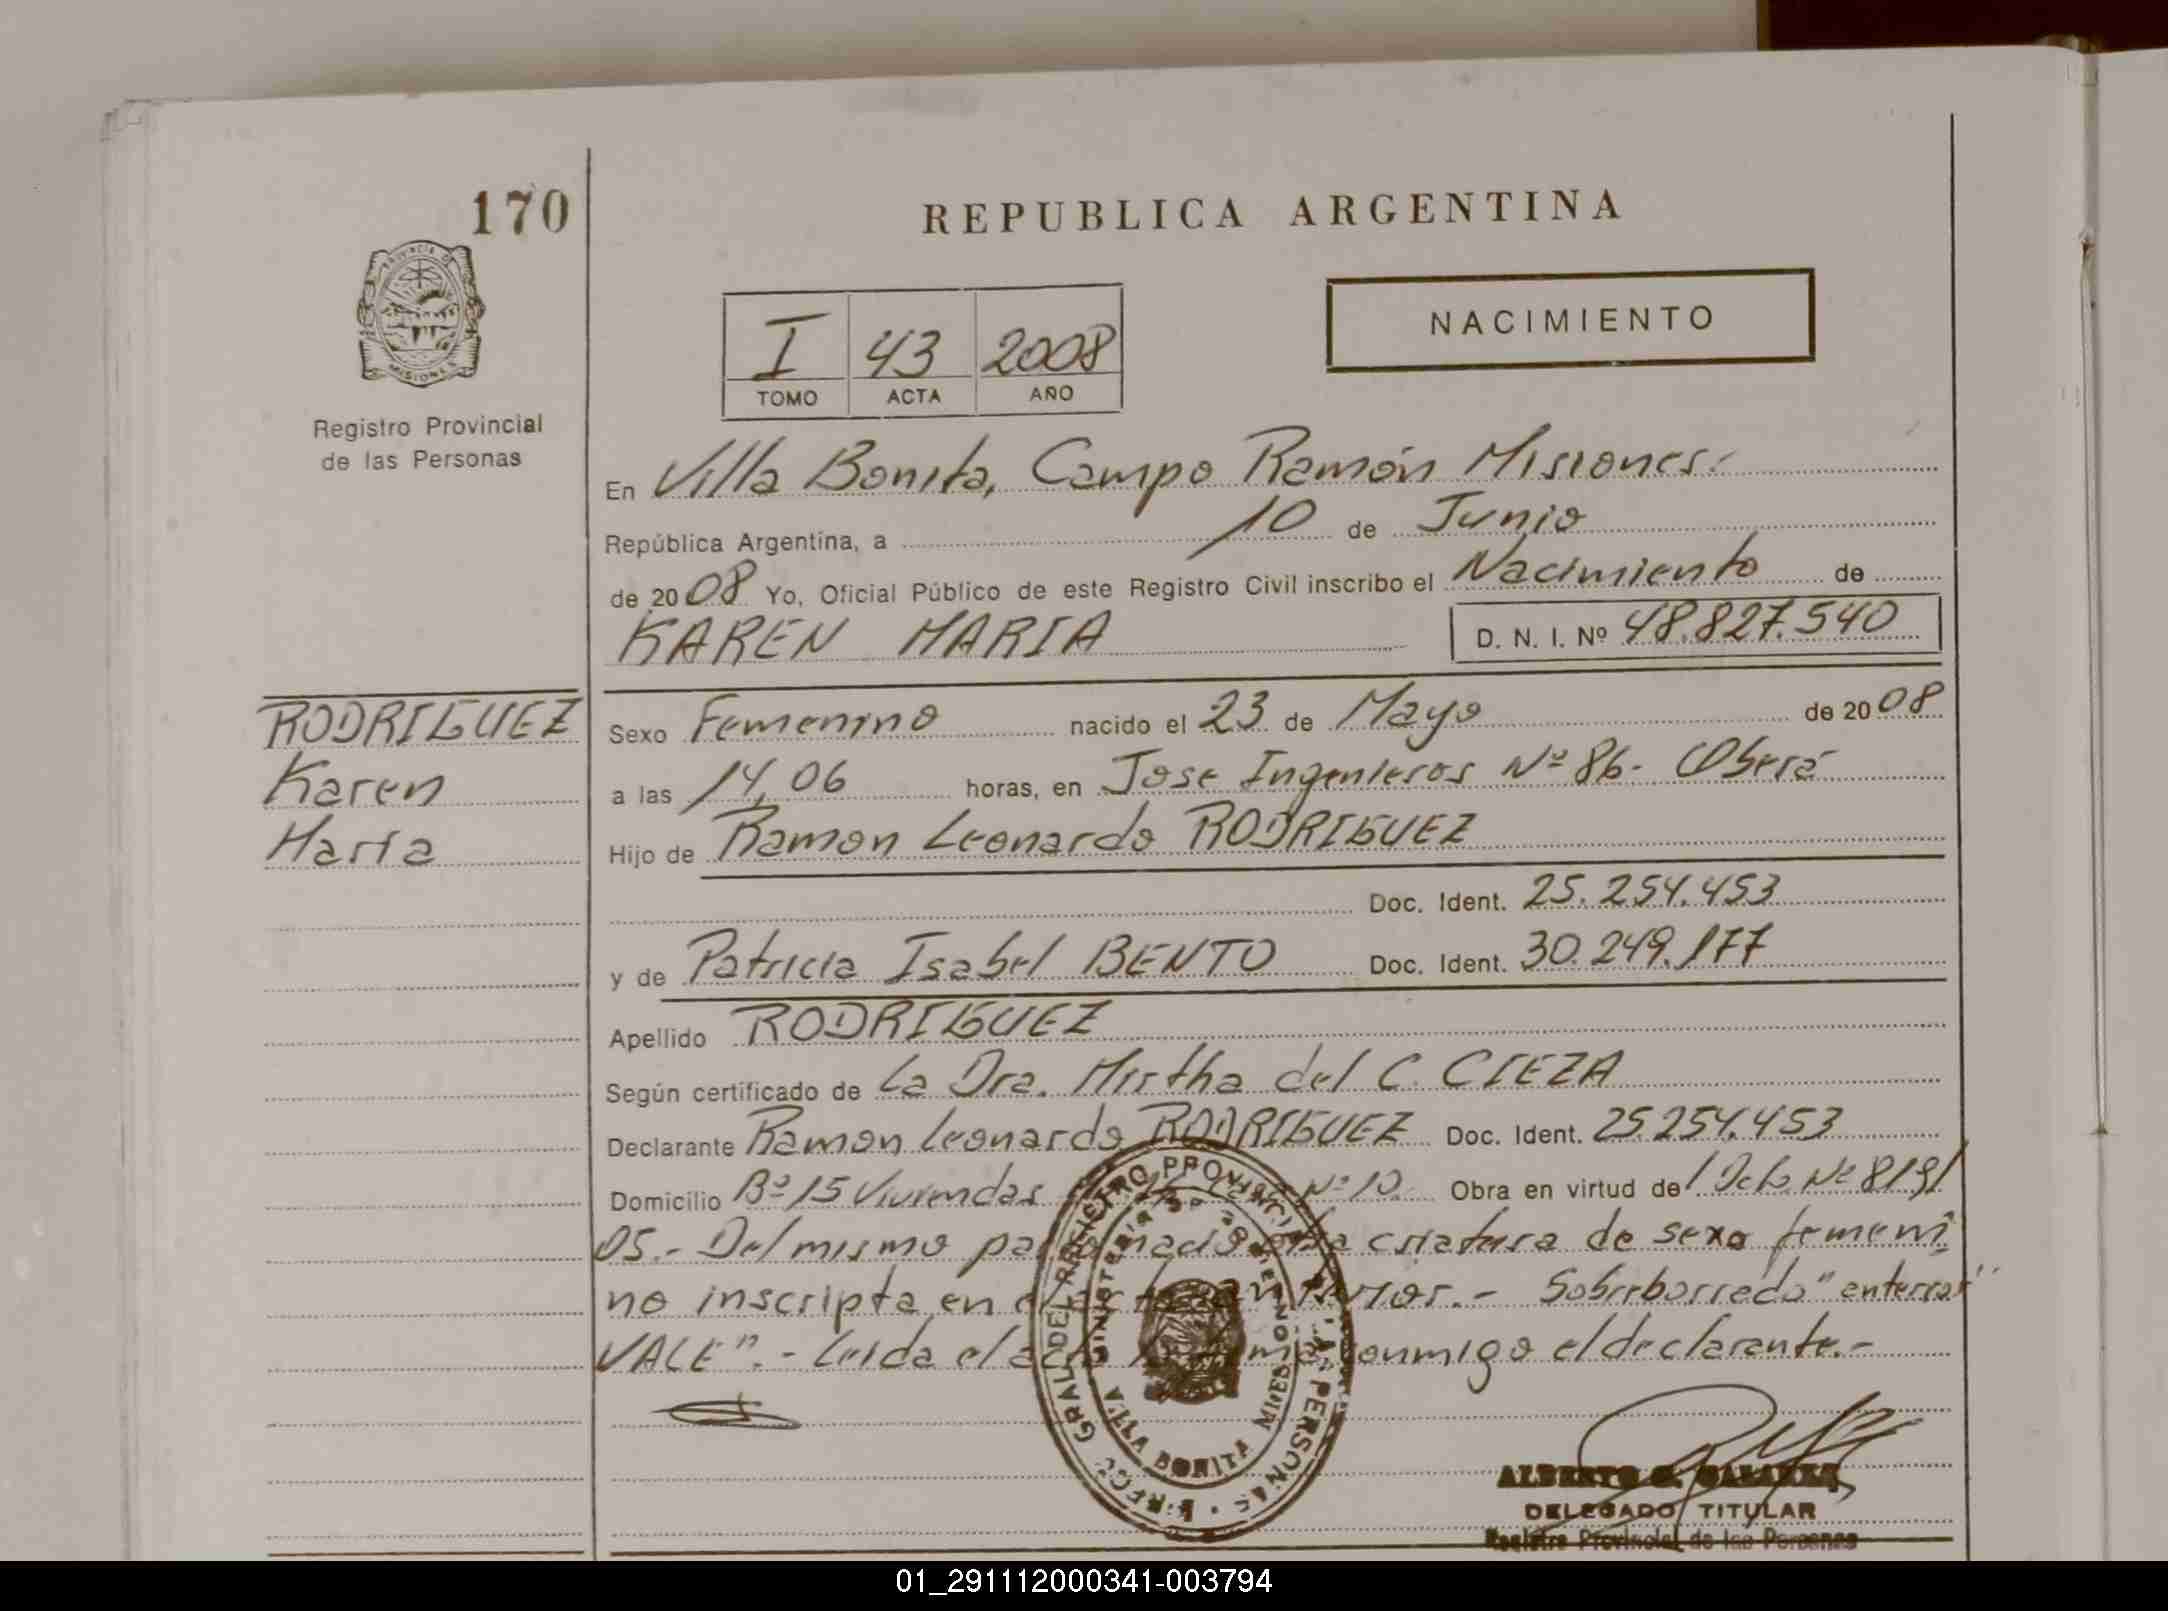 170
REPUBLICA ARGENTINA
PROVINCIA DE
MISIONES
Registro Provincial
de las Personas
I 43 2008
TOMO ACTA AÑO
NACIMIENTO
En Villa Bonita, Campo Ramón Misiones.-
República Argentina, a 10 de Junio
de 2008 Yo, Oficial Público de este Registro Civil inscribo el Nacimiento de
KAREN MARIA D. N. I. Nº 48.827.540
RODRIGUEZ
Karen
María
Sexo Femenino nacido el 23 de Mayo de 2008
a las 14,06 horas, en Jose Ingenieros Nº 86- Oberá
Hijo de Ramon Leonardo RODRIGUEZ
Doc. Ident. 25.254.453
y de Patricia Isabel BENTO Doc. Ident. 30.249.177
Apellido RODRIGUEZ
Según certificado de La Dra. Mirtha del C. CIEZA
Declarante Ramon Leonardo RODRIGUEZ Doc. Ident. 25.254.453
Domicilio Bº 15 Viviendas Nº 10. Obra en virtud de
05.- Del mismo criatura de sexo femeni
no inscripta en el .- Sobreborrado "
VALE".- Leida el acta conmigo el declarante.-
DIRECC. GRAL DEL REGISTRO PROVINCIAL DE LAS PERSONAS
MINISTERIO DE GOBIERNO
VILLA BONITA MISIONES
ALBERTO
DELEGADO TITULAR
Registro Provincial de las Personas
01_291112000341-003794